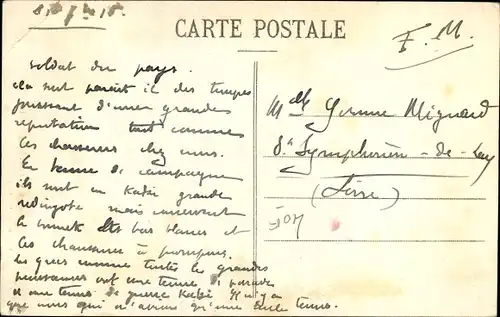 CARTE POSTALE
F. M.
soldat du pays.
ils sont paraît il des troupes
jouissant d'une grande
réputation tout comme
les chasseurs chez nous.
En tenue de campagne
ils sont en Kaki grande
redingote mais conservent
le bonnet les bas blancs et
les chaussures à pompons.
Les grecs comme toutes les grandes
puissances ont une tenue de parade
et une tenue de guerre Kaki Il n'y a
que nous qui n'avions qu'une seule tenue.
Mlle Yvonne Mignard
St Symphorien-de-Lay
(Loire)